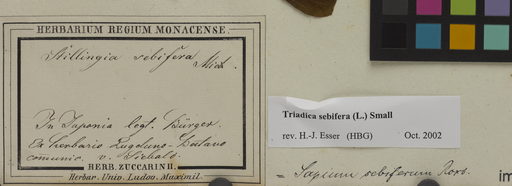 HERBARIUM REGIUM MONACENSE.
Stillingia sebifera Mich.
In Japonia legt. Bürger.
Ex herbario Lugduno-Batavo
communic. v. Siebold.
HERB. ZUCCARINII.
Herbar. Univ. Ludov. Maximil.
Triadica sebifera (L.) Small
rev. H.-J. Esser (HBG) Oct. 2002
= Sapium sebiferum Roxb.
im